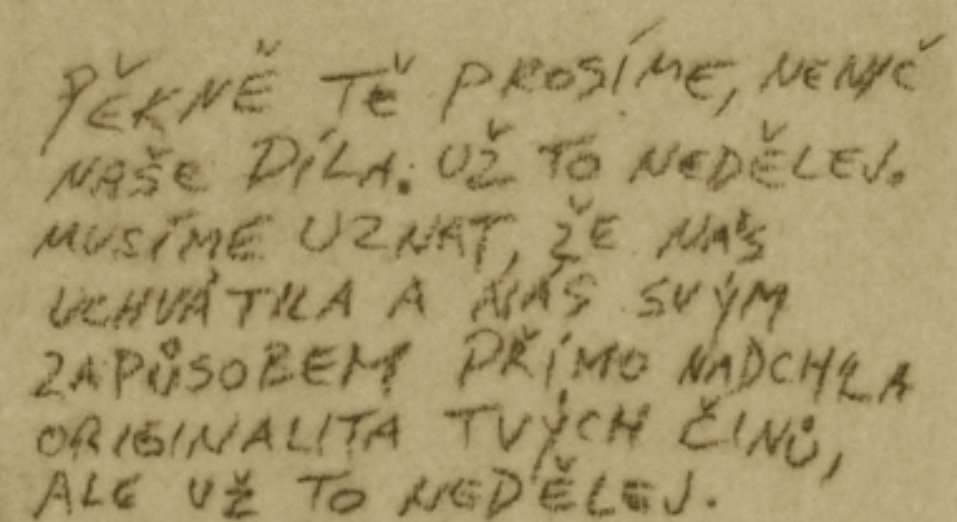 PĚKNĚ TĚ PROSÍME, NENIČ
NAŠE DÍLA. UŽ TO NEDĚLEJ.
MUSÍME UZNAT, ŽE NÁS
UCHVÁTILA A NÁS SVÝM
ZAPŮSOBEM PŘÍMO NADCHLA
ORIGINALITA TVÝCH ČINŮ,
ALE UŽ TO NEDĚLEJ.